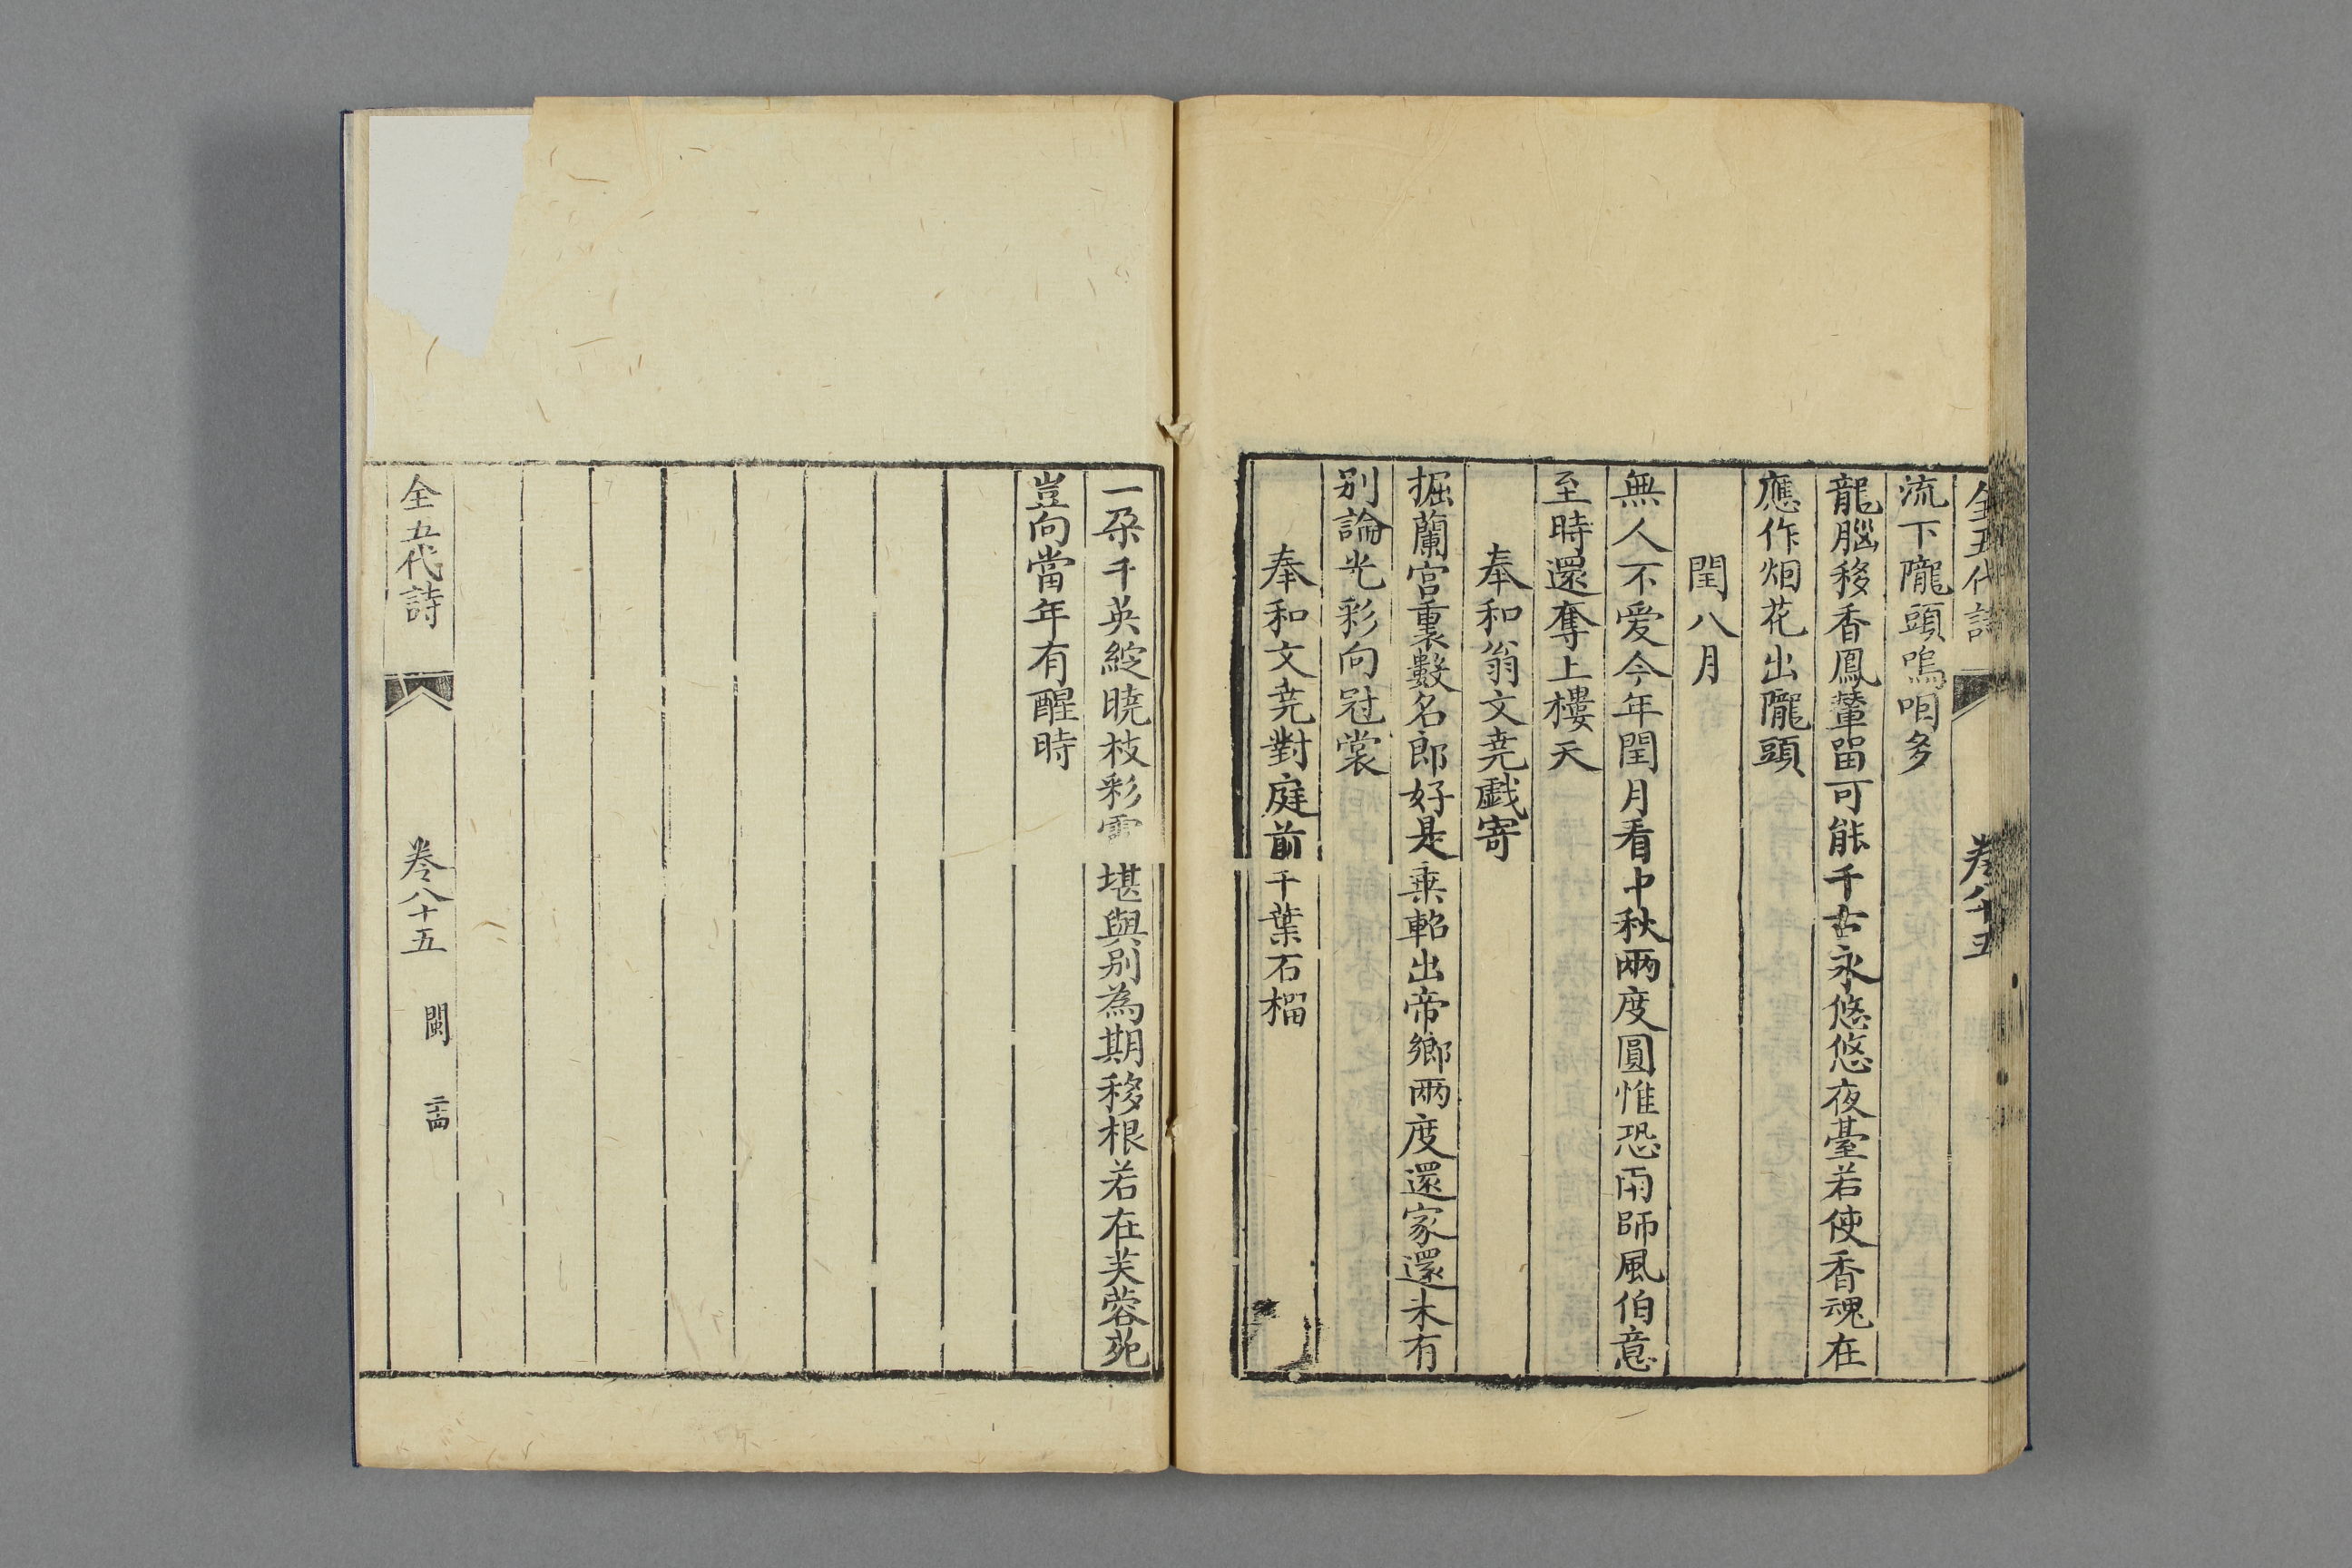 全五代詩 卷八十五
流下隴頭嗚咽多
龍腦移香鳳輦畱可能千古永悠悠夜臺若使香魂在
應作烟花出隴頭
閏八月
無人不爱今年閏月看中秋兩度圓惟恐雨師風伯意
至時還奪上樓天
奉和翁文尭戯寄
掘蘭宫裏數名郎好是乗軺出帝鄉兩度還家還未有
别論光彩向冠裳
奉和文尭對庭前千葉石榴
一朶千英綻曉枝彩雲堪與别為期移根若在芙蓉苑
豈向當年有醒時
全五代詩 卷八十五 閩 二十四